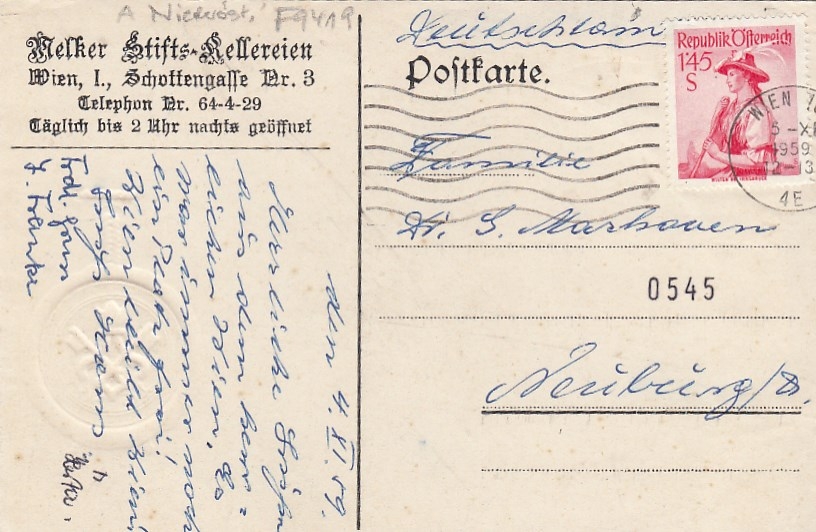 A Niederöst. F9419
Melker Stifts-Kellereien
Wien, I., Schottengasse Nr. 3
Telephon Nr. 64-4-29
Täglich bis 2 Uhr nachts geöffnet
Deutschland
Postkarte.
Republik Österreich
1'45
S
WIEN
5-XI
1959
12-13
4E
Familie
Dr. G.
0545
Neuburg/D.
den 4. XI. 59.
Herzliche Grüße
aus dem herr=
lichen Wien. Es
war immer noch
ein Platz frei!
Wien bleibt Wien!
Hans
Frdl. Gruß
F. Franke